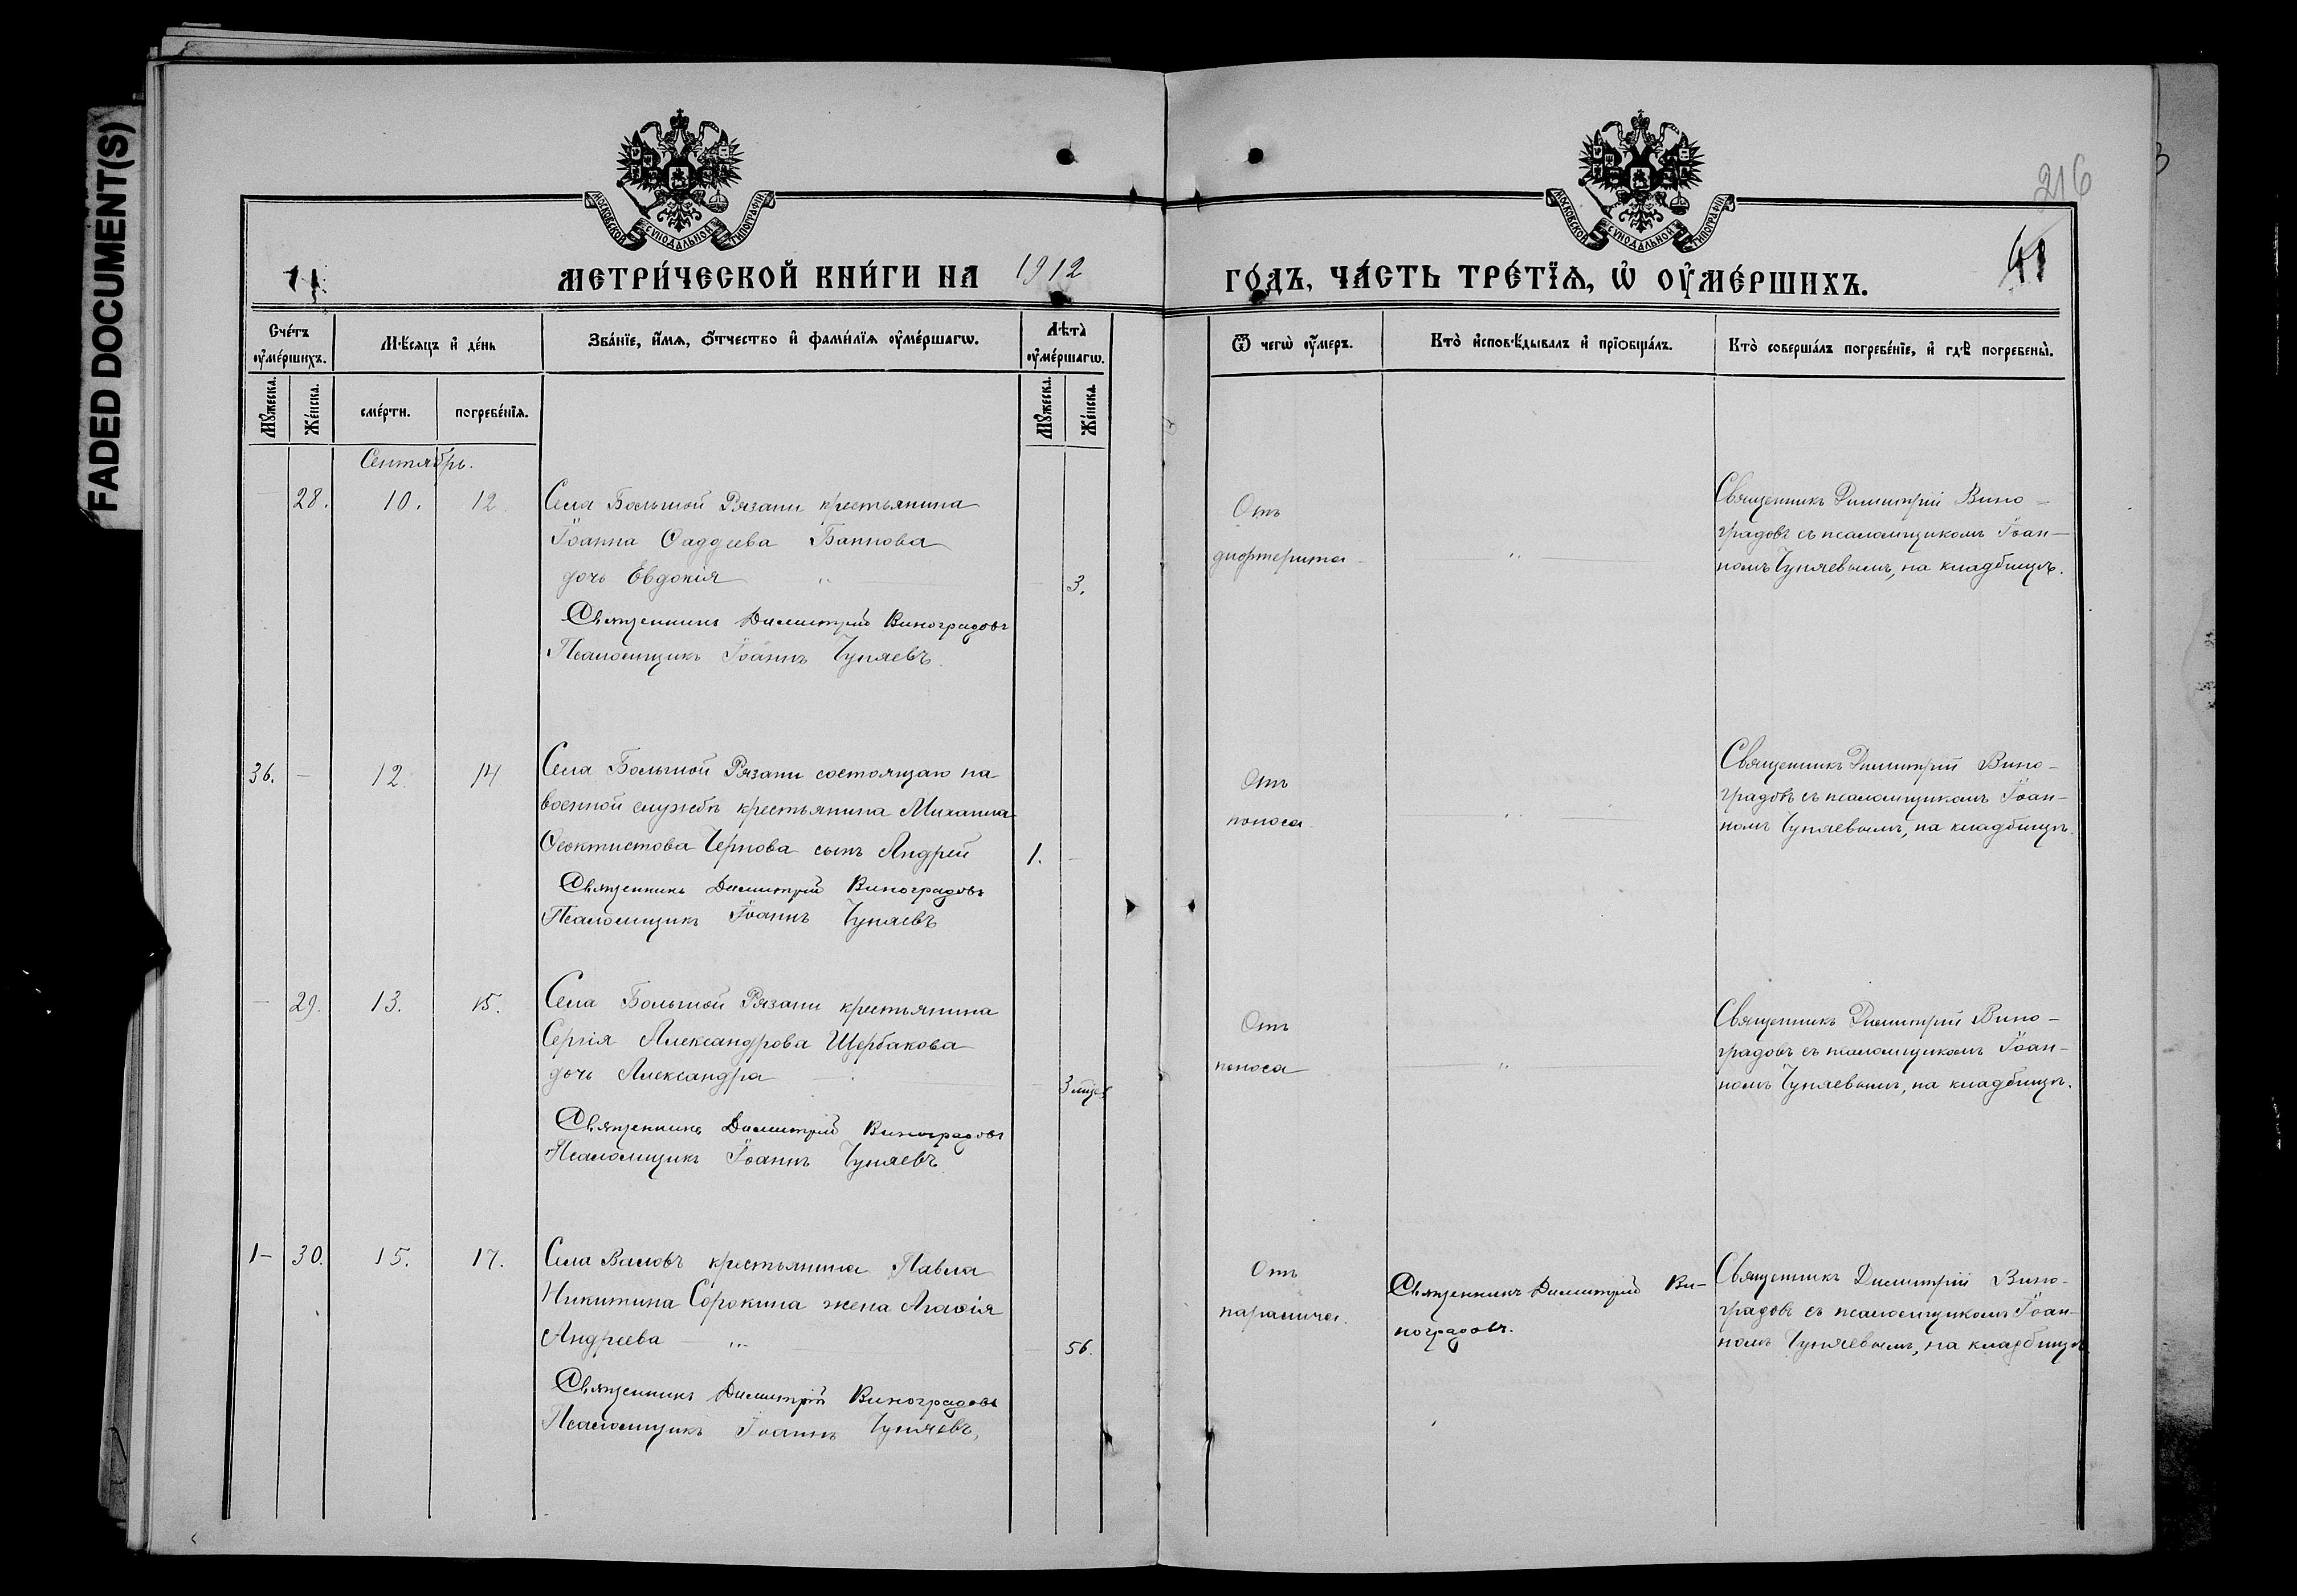 FADED DOCUMENT(S)
МОСКОВСКОЙ СѴНОДАЛЬНОЙ ТИПОГРАФІИ
МОСКОВСКОЙ СѴНОДАЛЬНОЙ ТИПОГРАФІИ
216
МЕТРИ́ЧЕСКОЙ КНИ́ГИ НА 1912
ГО́ДЪ, ЧА́СТЬ ТРЕ́ТІѦ, Ѡ҆ ОУ҆МЕ́РШИХЪ.
Сче́тъ оу҆ме́ршихъ.
Мѣ́сяцъ и҆ де́нь
Зва́нїе, и҆́мѧ, ѻ҆́тчество и҆ фами́лїѧ оу҆ме́ршагѡ.
Лѣ́та оу҆ме́ршагѡ.
Ѿ чегѡ̀ оу҆́меръ.
Кто̀ и҆сповѣ́дывалъ и҆ прїѻбща́лъ.
Кто̀ соверша́лъ погребе́нїе, и҆ гдѣ̀ погребены̀.
Мꙋжеска.
Же́нска.
сме́рти.
погребе́нїѧ.
Мꙋжеска.
Же́нска.
Сентябрь.
28. 10. 12.
Села Большой Рязани крестьянина
Іоанна Ѳаддеева Баннова
дочь Евдокія
3.
Священникъ Димитрій Виноградовъ
Псаломщикъ Іоаннъ Чуняевъ.
Отъ
дифтерита
Священникъ Димитрій Вино-
градовъ съ псаломщикомъ Іоан-
номъ Чуняевымъ, на кладбищѣ.
36. - 12. 14
Села Большой Рязани состоящаго на
военной службѣ крестьянина Михаила
Ѳеоктистова Чернова сынъ Андрей
1.
Священникъ Димитрій Виноградовъ
Псаломщикъ Іоаннъ Чуняевъ
Отъ
поноса.
Священникъ Димитрій Вино-
градовъ съ псаломщикомъ Іоан-
номъ Чуняевымъ, на кладбищѣ.
- 29. 13. 15.
Села Большой Рязани крестьянина
Сергія Александрова Щербакова
дочь Александра
3 мѣс.
Священникъ Димитрій Виноградовъ
Псаломщикъ Іоаннъ Чуняевъ.
Отъ
поноса
Священникъ Димитрій Вино-
градовъ съ псаломщикомъ Іоан-
номъ Чуняевымъ, на кладбищѣ.
30. 15. 17.
Села Валовъ крестьянина Павла
Никитина Сорокина жена Агаѳія
Андреева
56.
Священникъ Димитрій Виноградовъ
Псаломщикъ Іоаннъ Чуняевъ,
Отъ
паралича.
Священникъ Димитрій Ви-
ноградовъ.
Священникъ Димитрій Вино-
градовъ съ псаломщикомъ Іоан-
номъ Чуняевымъ, на кладбищѣ